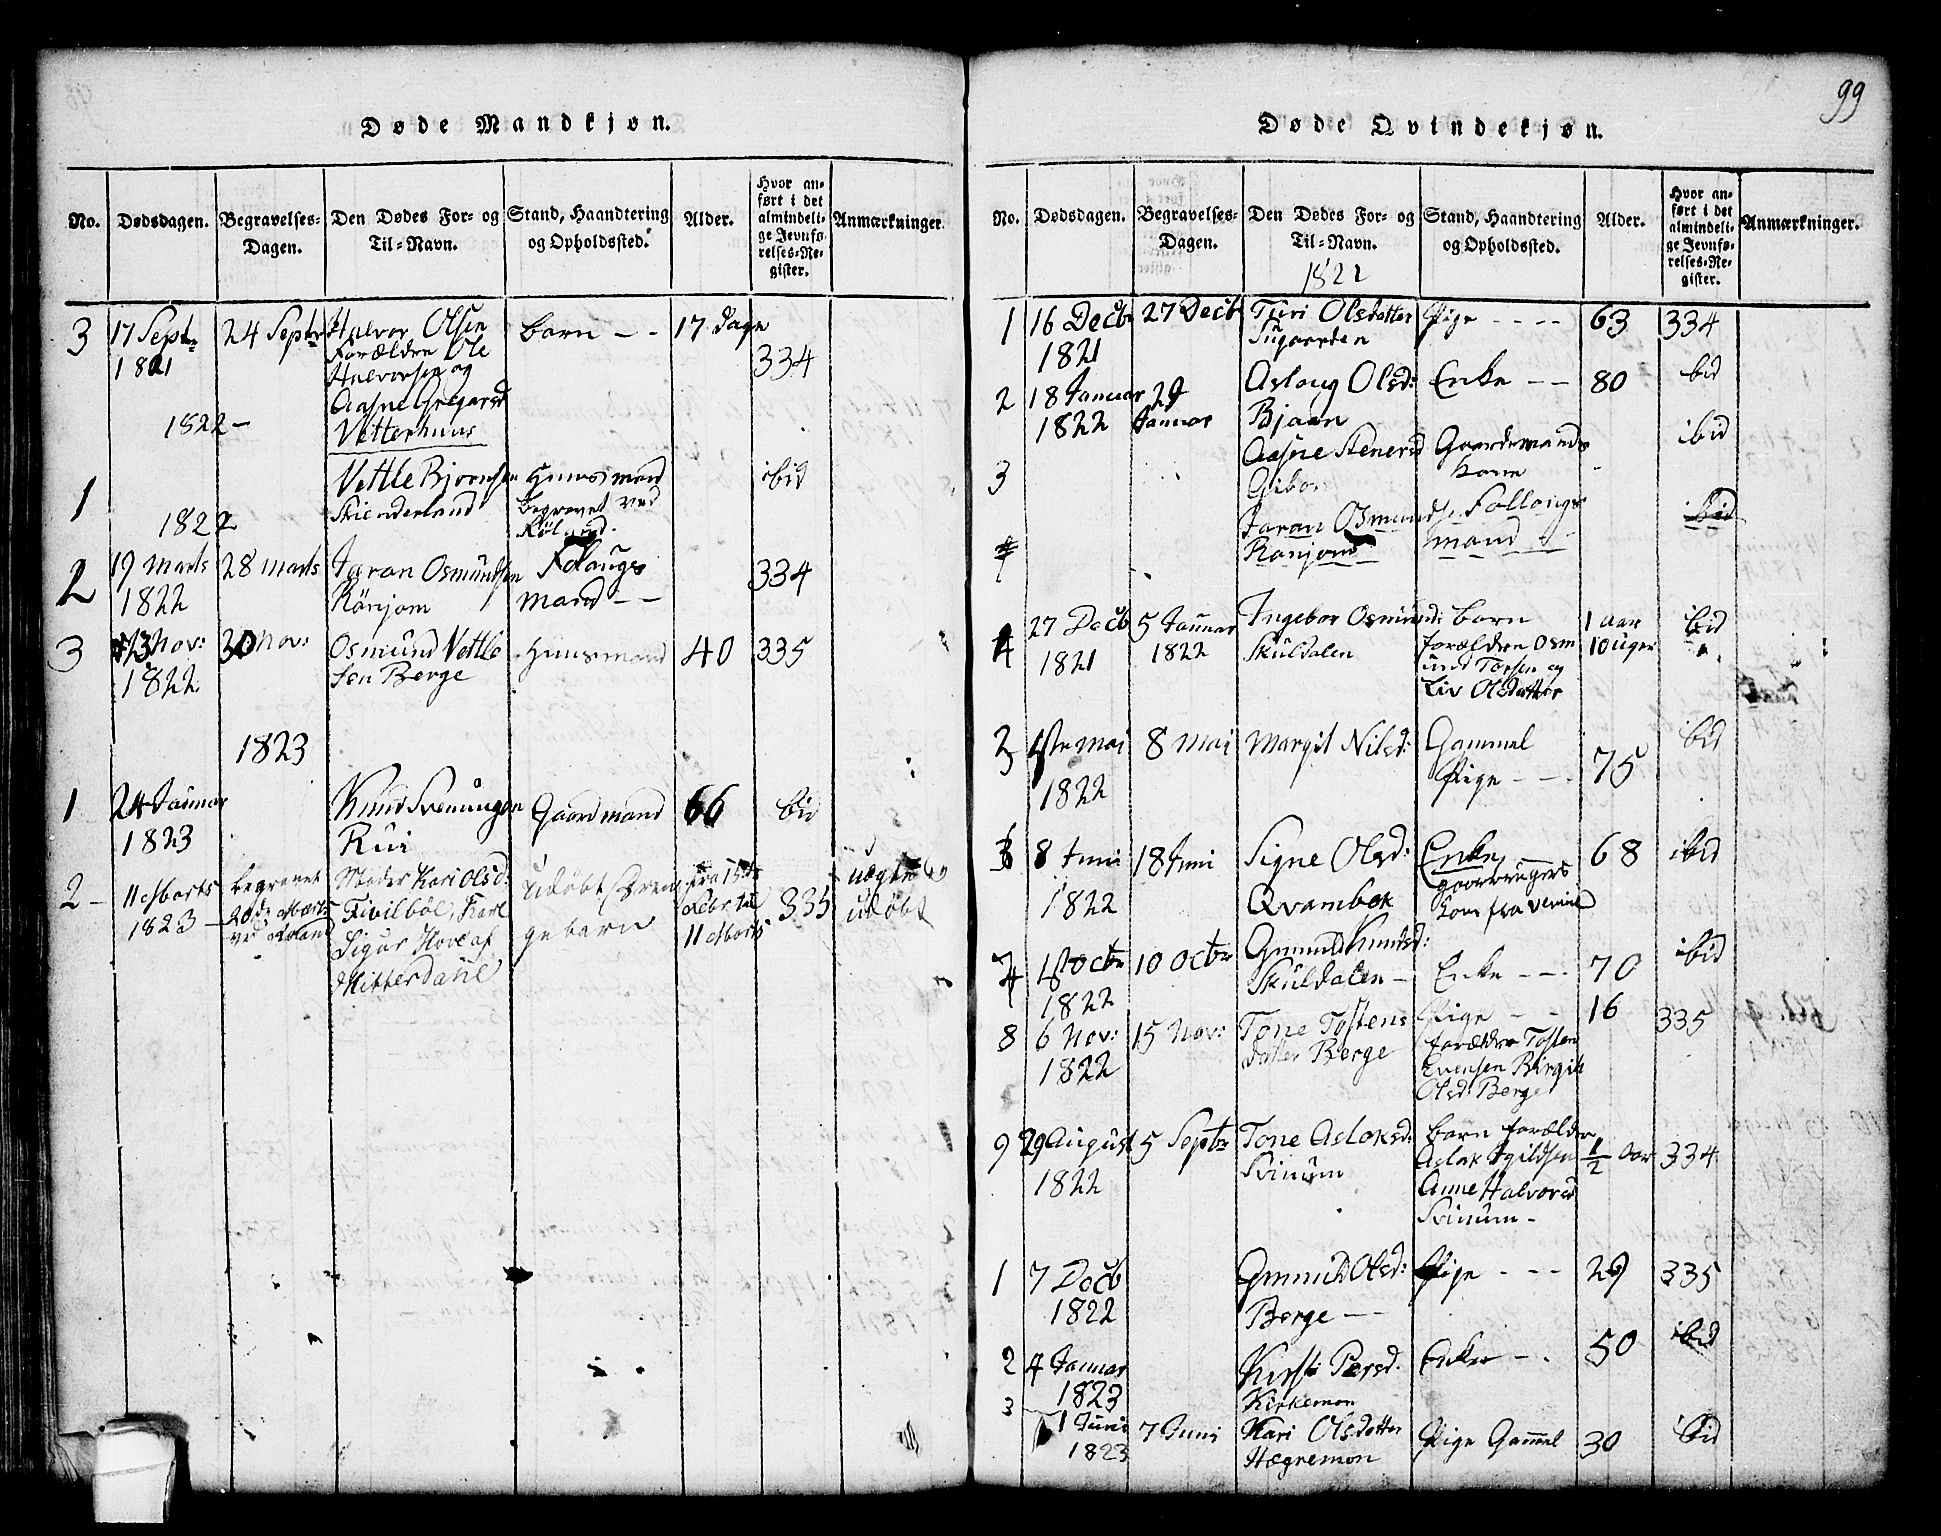 99
Døde Mandkjøn.
No. Dødsdagen. Begravelses-Dagen. Den Dødes For- og Til-Navn. Stand, Haandtering og Opholdssted. Alder. Hvor anført i det almindelige Jevnførelses-Register. Anmærkninger.
3 17 Septr 24 Septr Halvor Olsen Barn - - 17 Dage
1821 Forældre Ole 334
Halvorsen og
Aasne Gregarsd
1822 - Vetterhuus
1 Vettle Bjørnsen Huusmand ibid
Skinderland Begravet ved
1822
2 19 Marts 28 Marts Jaran Osmundsen Folougs 334
1822 Rönjom mand - -
3 13 Nov: 30 Nov: Osmund Vettle Huusmand 40 335
1822 sen Berge
1823
1 24 Januar Knud Sveningen Gaardmand 66 ibid
1823 Rui
2 - 11 Marts begravet Moder Kari Olsd: udøbt fra 15de uægte og
1823 - 20de Marts Febr til 335 udøbt
gebarn 11 Marts
Sigur Hove af
Hitterdahl
Døde Qvindekjøn.
No. Dødsdagen. Begravelses-Dagen. Den Dødes For- og Til-Navn. Stand, Haandtering og Opholdssted. Alder. Hvor anført i det almindelige Jevnførelses-Register. Anmærkninger.
1821
1 16 Decbr 27 Decbr Turi Olsdatter Pige - - - - 63 334
1821
2 18 Januar 29 Asloug Olsd: Enke - - 80 ibid
1822 Januar Bjaan
3 Aasne Stenersd Gaardmands ibid
kone
Jaran Osmundsen Follougs ibid
Rönjom mand - -
4 27 Decb 5 Januar Ingebor Osmund: Barn 1 aar ibid
1821 1822 Skuldalen forældre Osm 10 uger
und
Liv Olsdatter
1ste Mai 8 Mai Margit Nilsd: Gammel ibid
1822 Pige - - - 75
8 Juni 18 Juni Signe Olsd: Enke 68 ibid
1822 Qvambek
7 1st Octbr 10 Octbr Gunnild Knudsd: ibid
1822 Skuldalen - Enke - - 70
8 6 Nov: 15 Nov: Tone Tostens Pige - - 16 335
1822 datter Berge forældre Tosten
Evensen Birgit
Olsd: Berge
9 29 August 5 Septbr Tone Aslaksd: Barn forældre
1822 Svinum Aslak Egildsen 1/2 aar 334
Anne Halvorsd
Svinum -
1 7 Decb Gunnild Olsd: Pige - - - 29 335
1822 Berge - -
2 4 Januar Kirsti Persd: Enke - - 50 ibid
1823 Kirkemon
3 1 Juni 7 Juni Kari Olsdatter Pige Gammel 30 ibid
1823 Hægremon